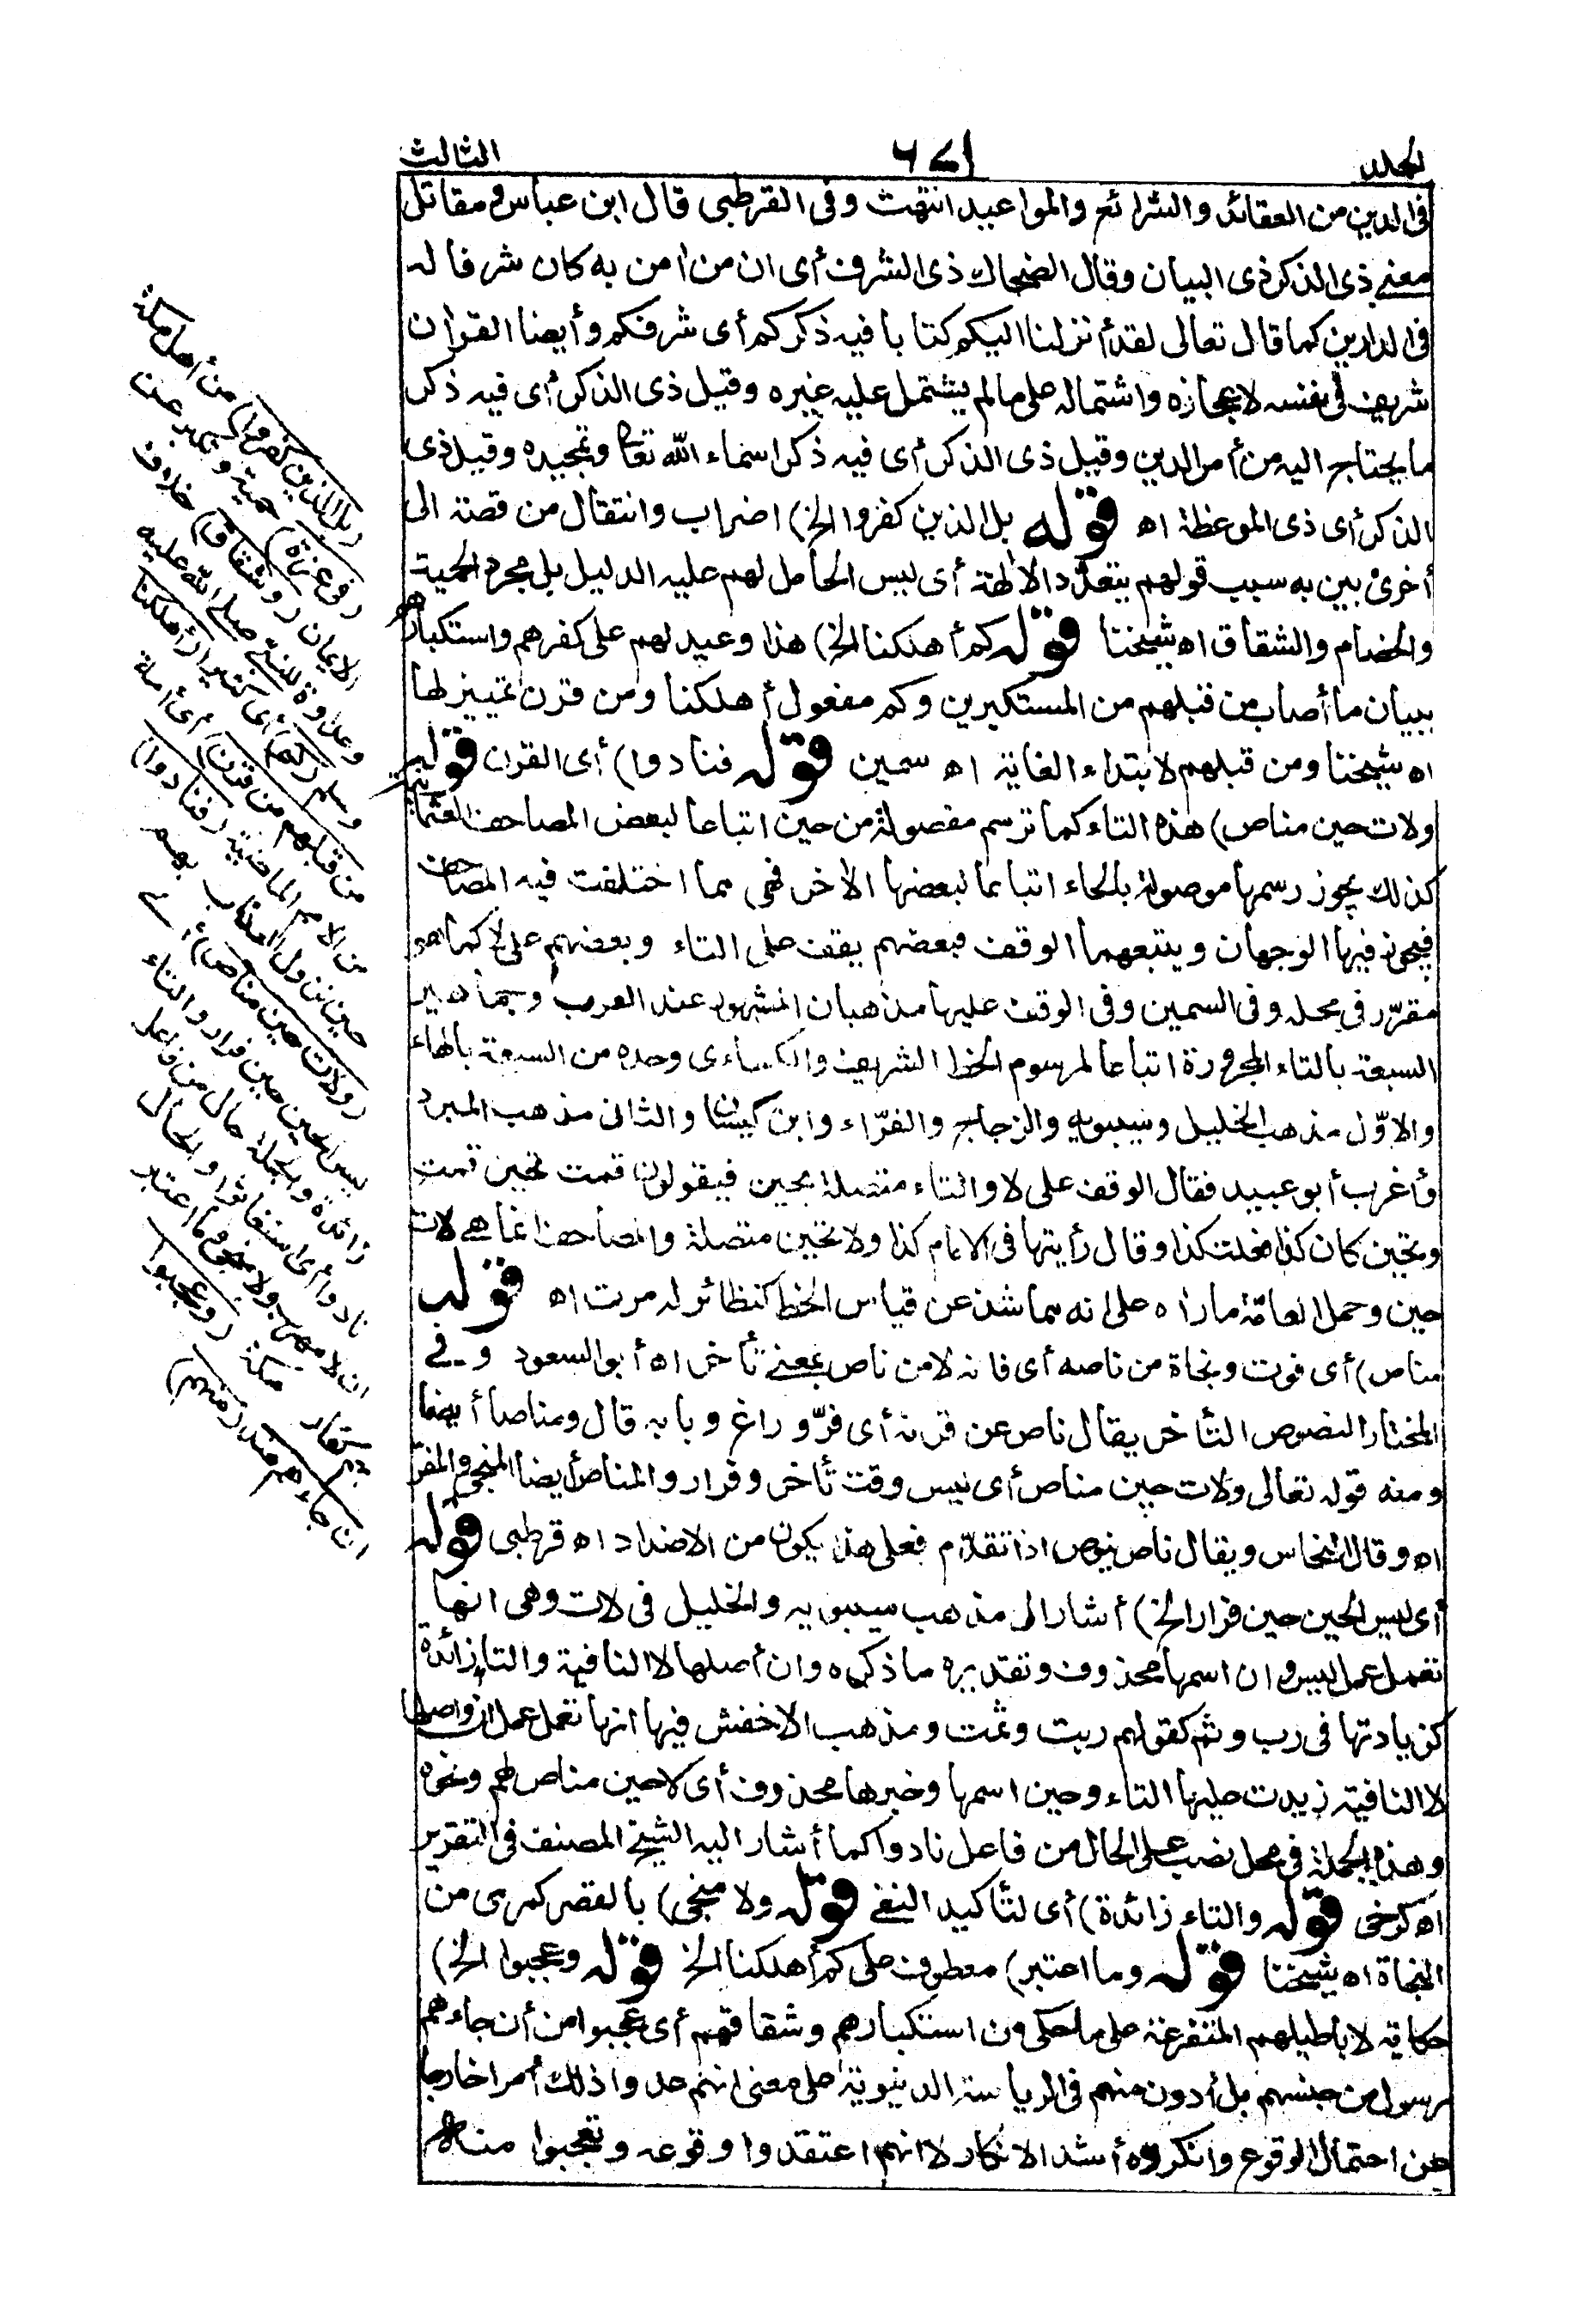 المجلد ٦٧١ الثالث
فى الدين من العقائد والشرائع والمواعيد انتهت وفى القرطبى قال ابن عباس ومقاتل
معنى ذى الذكر ذى البيان وقال الضحاك ذى الشرف أى ان من اٰمن به كان شرفا له
فى الدارين كما قال تعالى لقد أنزلنا اليكم كتابا فيه ذكركم أى شرفكم وأيضا القراٰن
شريف فى نفسه لاعجازه واشتماله على مالم يشتمل عليه غيره وقيل ذى الذكر أى فيه ذكر
ما يحتاج اليه من أمر الدين وقيل ذى الذكر أى فيه ذكر اسماء الله تعا وتمجيده وقيل ذى
الذكر أى ذى الموعظة اه قوله بل الذين كفروا الخ) اضراب وانتقال من قصة الى
أخرى بين به سبب قولهم بتعدّد الاٰلهة أى ليس الحامل لهم عليه الدليل بل مجرد الحمية
والخصام والشقاق اه شيخنا قوله كم أهلكنا الخ) هذا وعيد لهم على كفرهم واستكبارهم
ببيان ما أصاب من قبلهم من المستكبرين وكم مفعول أهلكنا ومن قرن تمييز لها
اه شيخنا ومن قبلهم لابتداء الغاية اه سمين قوله فنادوا) أى القرن قوله
ولات حين مناص) هذه التاء كما ترسم مفصولة من حين اتباعا لبعض المصاحف العثمانية
كذلك يجوز رسمها موصولة بالحاء اتباعا لبعضها الاٰخر فهى مما اختلفت فيه المصاحف
فيجوز فيها الوجهان ويتبعهما الوقف فبعضهم يقف على التاء وبعضهم على لا كما هو
مقرّر فى محله وفى السمين وفى الوقف عليها مذهبان المشهور عند العرب وجماهير
السبعة بالتاء المجرورة اتباعا لمرسوم الخط الشريف والكسائى وحده من السبعة بالهاء
والاوّل مذهب الخليل وسيبويه والزجاج والفرّاء وابن كيسان والثانى مذهب المبرد
وأغرب أبو عبيد فقال الوقف على لا والتاء متصلة بحين فيقولون قمت تحين قمت
وتحين كان كذا فعلت كذا وقال رأيتها فى الامام كذا ولا تحين متصلة والمصاحف انما هى لات
حين وحمل العامّة ما راٰه على انه مما شذ عن قياس الخط كنظائر له مرت اه قوله
مناص) أى فوت ونجاة من ناصه أى فاته لا من ناص بمعنى تأخر اه أبو السعود وفى
المختار النصوص التأخر يقال ناص عن قرنه أى فرّ وراغ وبابه قال ومناصا أيضا
ومنه قوله تعالى ولات حين مناص أى ليس وقت تأخر وفرار والمناص أيضا المنجى والمفرّ
اه وقال النحاس ويقال ناص ينوص اذا تقدّم فعلى هذا يكون من الاضداد اه قرطبى قوله
أى ليس الحين حين فرار الخ) أشار الى مذهب سيبويه والخليل فى لات وهى انها
تعمل عمل ليس وان اسمها محذوف وتقديره ما ذكره وان أصلها لا النافية والتاء زائدة
كزيادتها فى رب وثم كقولهم ربت وثمت ومذهب الاخفش فيها انها تعمل عمل ان واصلها
لا النافية زيدت عليها التاء وحين اسمها وخبرها محذوف أى لا حين مناص لهم ونحوه
وهذه الجملة فى محل نصب على الحال من فاعل نادوا كما أشار اليه الشيخ المصنف فى التقرير
اه كرخى قوله والتاء زائدة) أى لتأكيد النفى قوله ولا منجى) بالقصر كمرمى من
النجاة اه شيخنا قوله وما اعتبر) معطوف على كم أهلكنا الخ قوله وعجبوا الخ)
حكاية لاباطيلهم المتفرعة على ما حكى من استكبارهم وشقاقهم أى عجبوا من أن جاءهم
رسول من جنسهم بل أدون منهم فى الرياسة الدنيوية على معنى انهم عدوا ذلك أمرا خارجا
عن احتمال الوقوع وانكروه أشد الانكار لا انهم اعتقدوا وقوعه وتعجبوا منه
(بل الذين كفروا) من أهل مكة
(فى عزة) حمية وتكبر عن
الايمان (وشقاق) خلاف
وعداوة للنبى صلى الله عليه
وسلم (كم) أى كثيرا (أهلكنا
من قبلهم من قرن) أى أمة
من الامم الماضية (فنادوا)
حين نزول العذاب بهم
(ولات حين مناص) أى
ليس الحين حين فرار والتاء
زائدة والجملة حال من فاعل
نادوا أى استغاثوا والحال
ان لا مهرب ولا منجى وما اعتبر
بهم كفار مكة (وعجبوا
ان جاءهم منذر منهم)